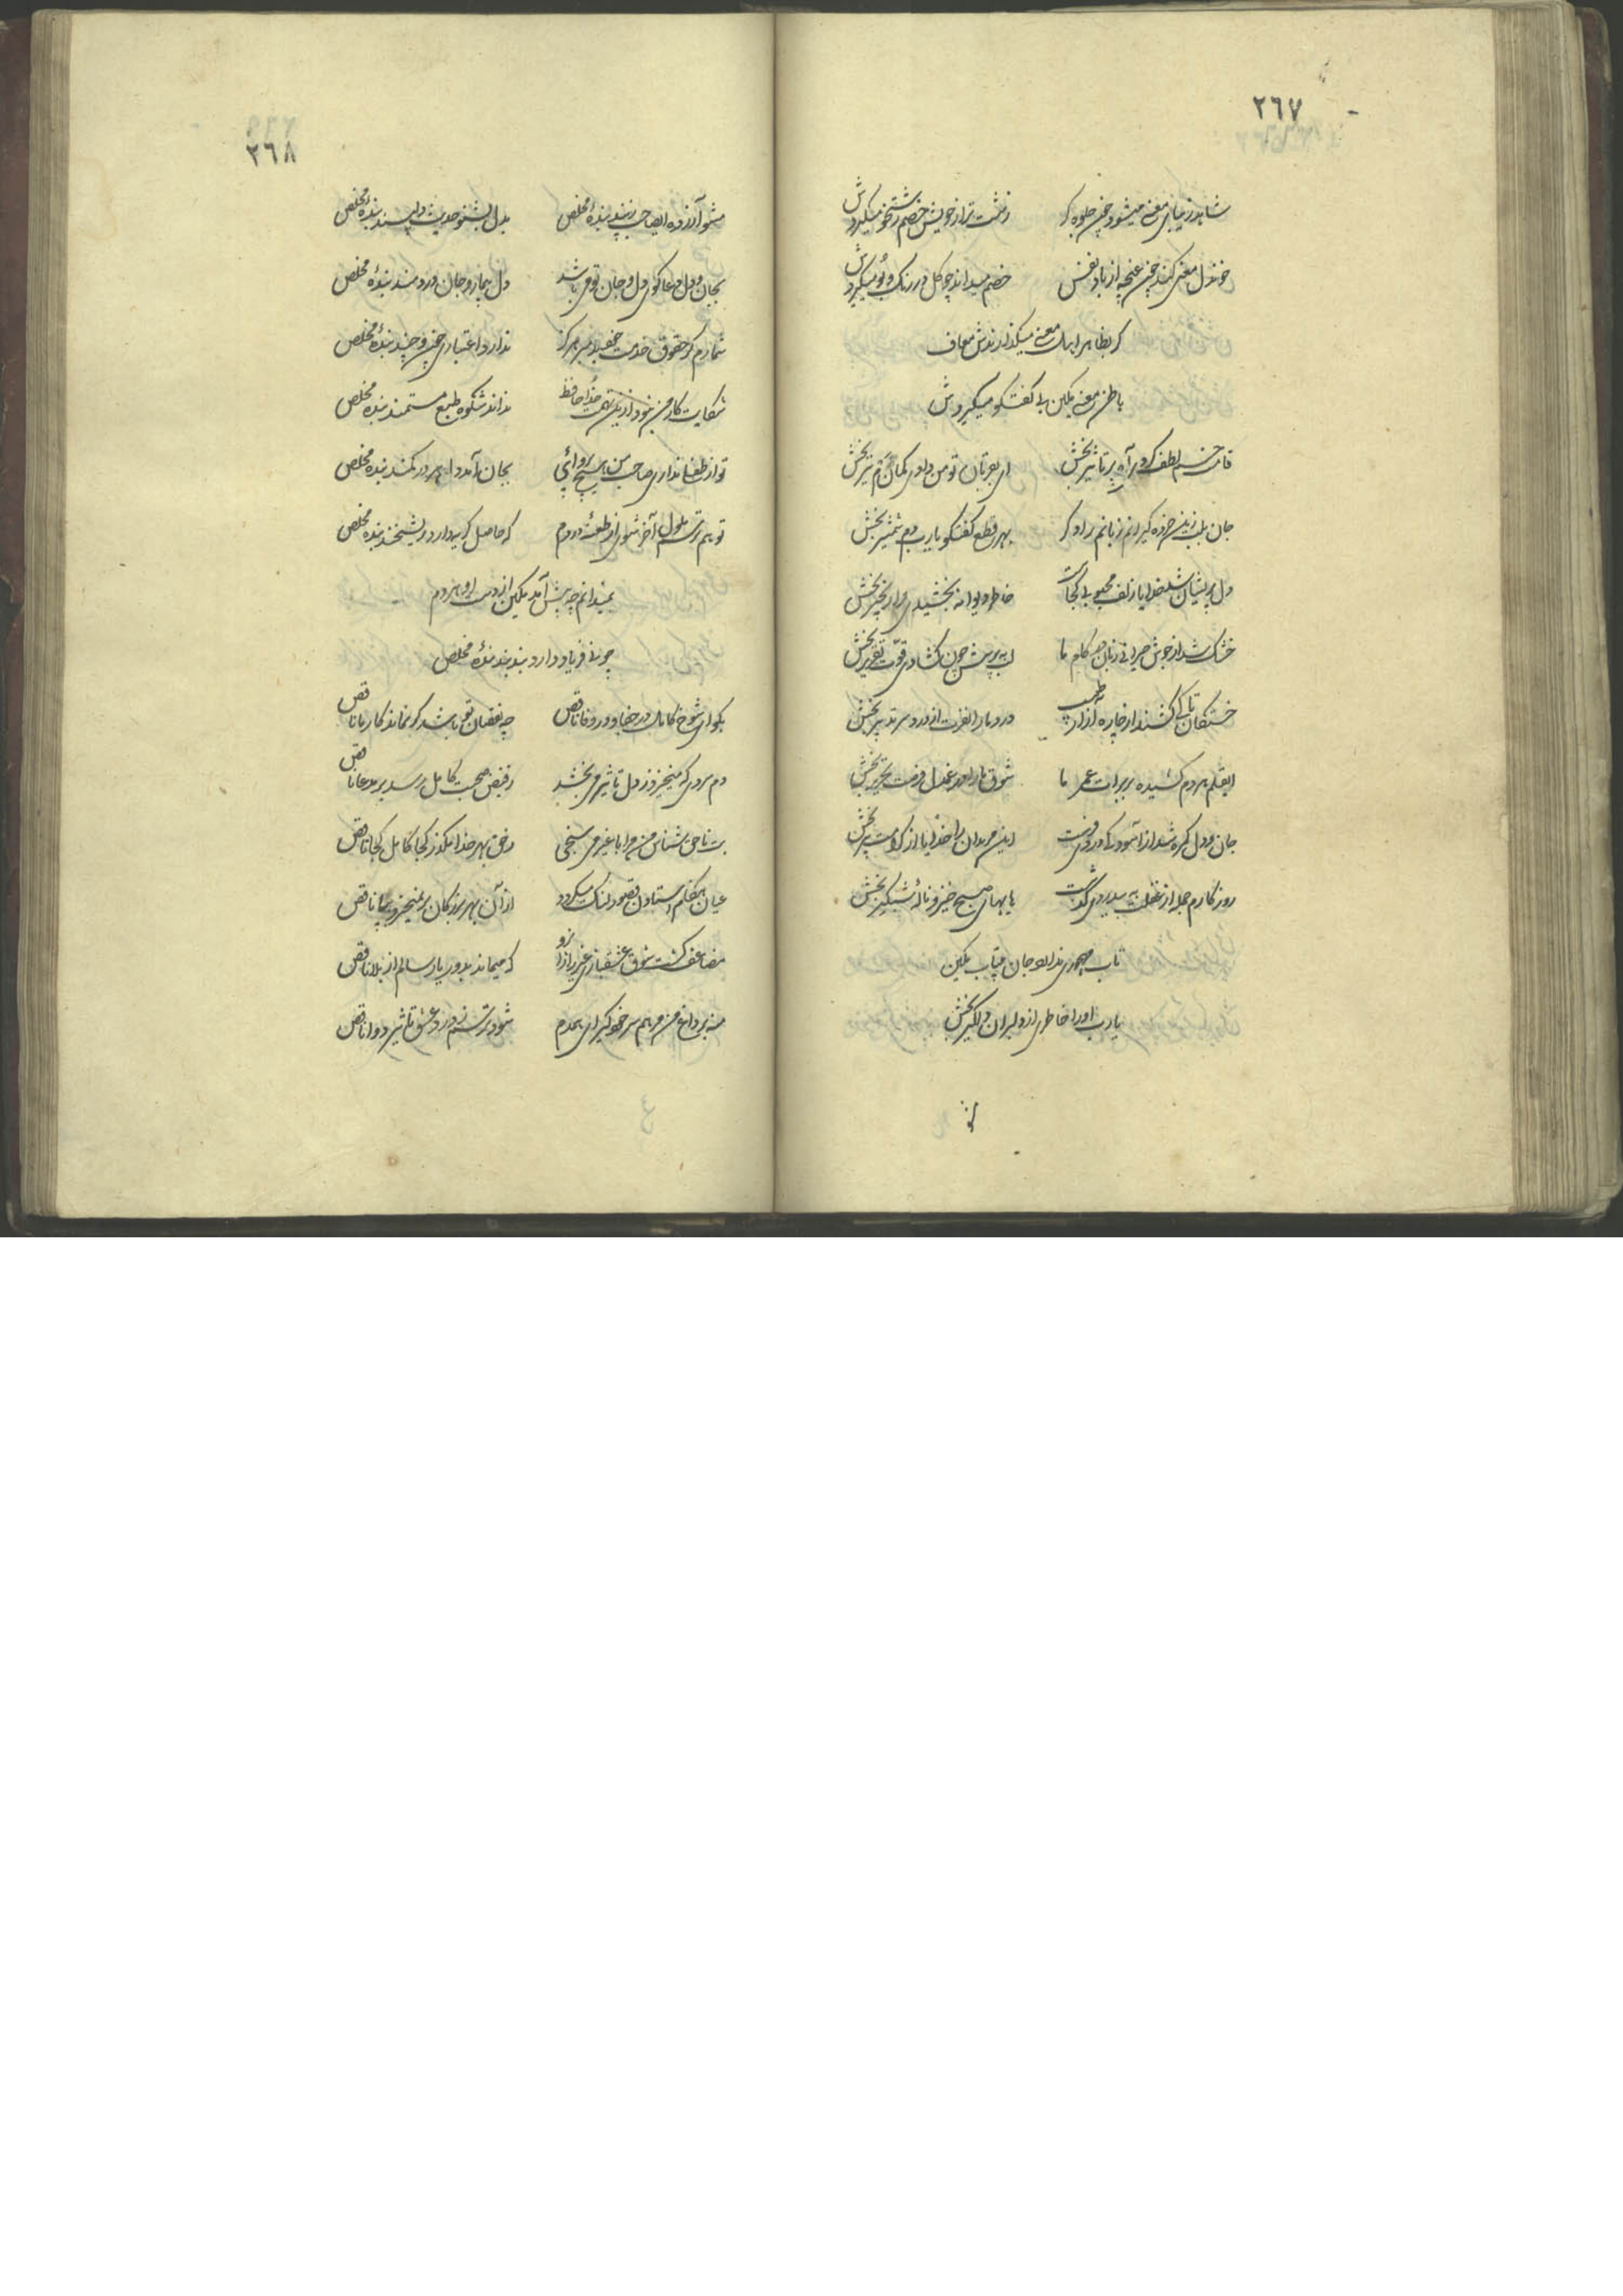 ٢٦٧
شاهد زیبای معنی میشود چون جلوه گر زشت تر از خویش خصم زشتخو میگیردش
خنده دل معنی کند چون غنچه از باد نفس خصم میداند چو گل در رنگ و بو میگیردش
گر بظاهر اهل معنی میگذارندش معاف
باطن معنی بکین گفتگو میگیردش
لطف کردی آه پر تاثیر بخش ای تو من دادی کمان هم تیر بخش
جان بلب خرده گیرانم زبانم راد گر بهر قطع گفتگو یارب دم شمشیر بخش
دل پریشان شد خدایا زلف محبوبی کجاست خاطر دیوانه بخشیدی مرا زنجیر بخش
خشک شد از جوش حیرانی زبان در کام ما لب به پرسش چون گشادی قوت تقریر بخش
خستگان تا کی کشند از چاره آزار طبیب درد ما را نفرت از درد سر تدبیر بخش
ایقلم هر دم کشیده بر برات عمر ما شوق ما را در غزل فرصت تحریر بخش
جان و دل گمره شد از این مریدان را خدایا از کرامت پیر بخش
روزگارم جمله از غفلت به بیدردی گذشت های های صبح خیز و ناله شبگیر بخش
تاب مهجوری ندارد جان بیتاب مکین
یارب او را خاطری از دلبران دلگیر بخش
٢٦٨
مشو آزرده ایصاحب ز پند بنده مخلص بدل بشنو حدیث دلپسند بنده مخلص
بجان و دل دعاگوی دل و جان تو می باشد دل بیمار و جان دردمند بنده مخلص
شمارم گر حقوق خدمت خود را هرگز ندارد اعتباری چون و چند بنده مخلص
شکایت کار من نبود ازین تهمت خدا حافظ نداند شکوه طبع مستمند بنده مخلص
تو از لطفا نداری صاحب من هیچ پروائی بجان آمد دل در کمند بنده مخلص
تو هم ترسم ملول آخر شوی از طعنه مردم که حاصل گریه دارد ریشخند بنده مخلص
نمیدانم چه پیش آمد مکین از دست او هر دم
چو نی فریاد دارد بند بند بنده مخلص
بگو ای شوخ کامل در جفا و در وفا ناقص چه نقصان تو باشد گر نماند کار ما ناقص
دم سردی که میخیزد ز دل تاثیر می بخشد ز فیض صحبت کامل رسد بر مدعا ناقص
بت ناحق شناس من مرا با غیر می سنجی ز حق بهر خدا مگذر کجا کامل کجا ناقص
عیان هنگام استادن قصور لنگ میگردد از آن بهر بزرگان بر نمیخیزد ز جا ناقص
مضاعف گشت شوق عشقبازی عزیزان را زو که میماند بدور یار سالم از بلا ناقص
منه بر داغ من مرهم سر خود گیر ای همدم شود ترسم ز درد عشق تاثیر دوا ناقص